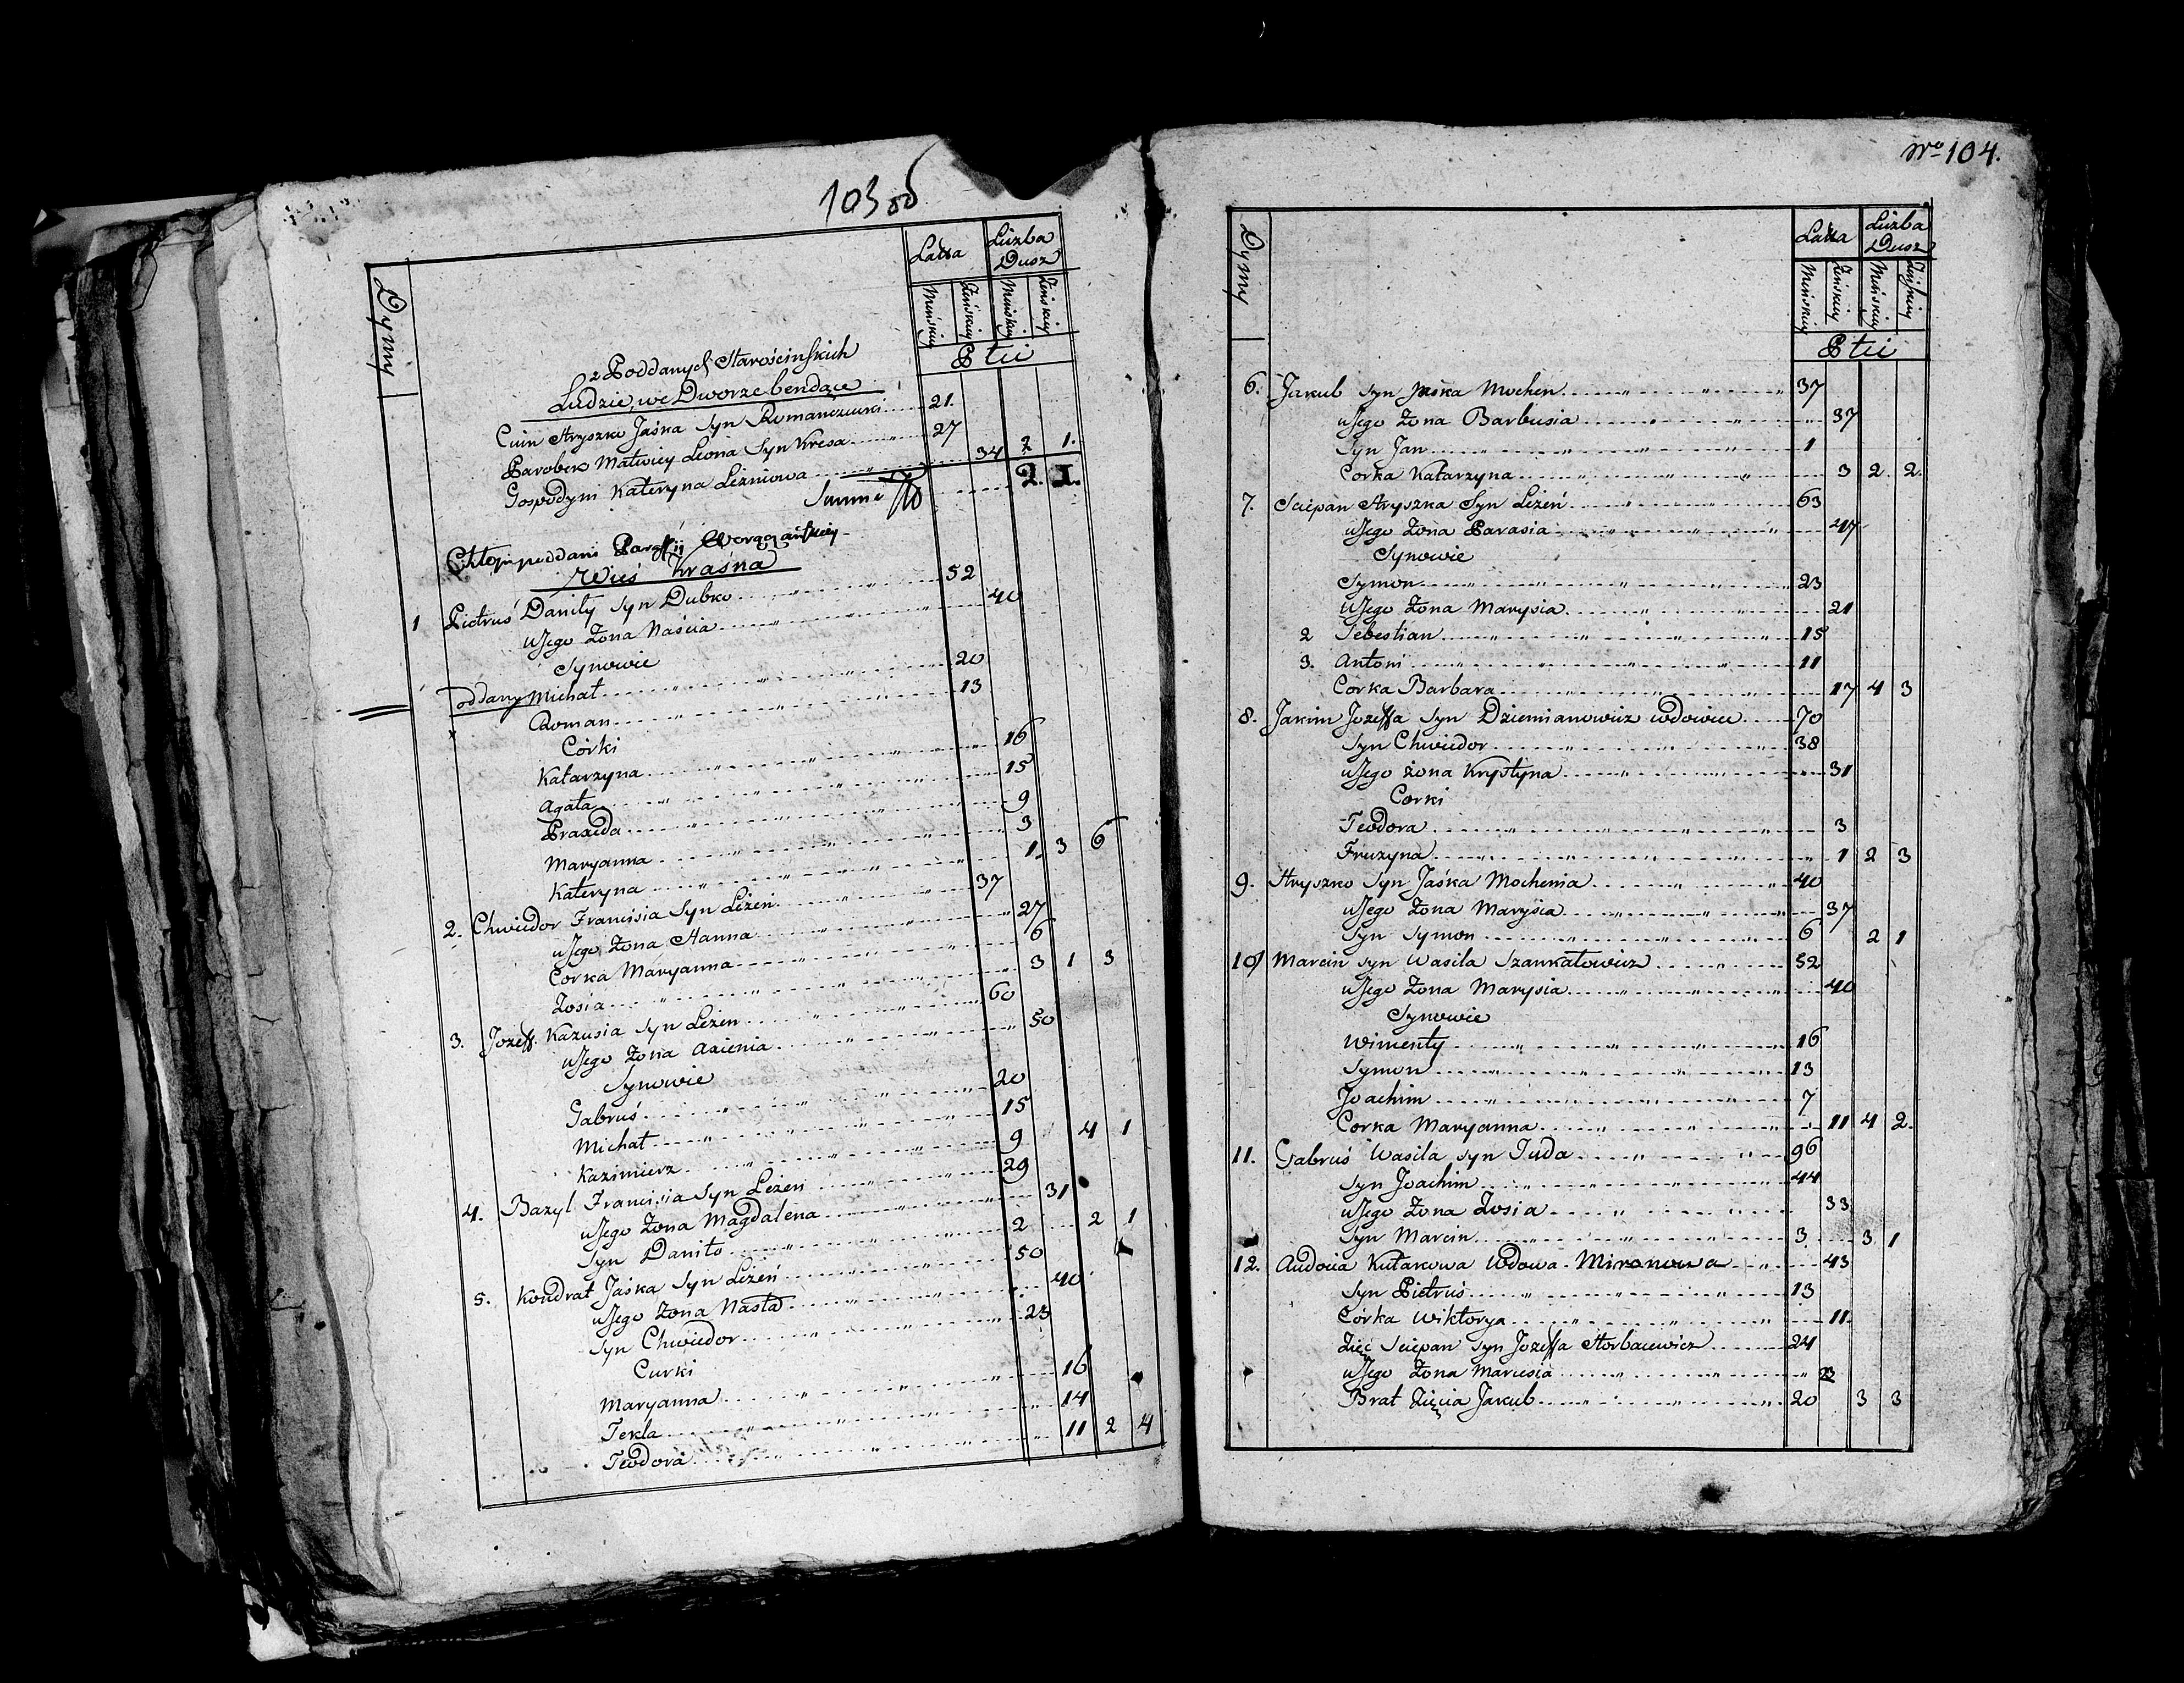 103 об
Dymy
Latta
Liczba Dusz
Męńskiey
Zeńskiey
Męńskiey
Zeńskiey
Płci
z Poddanych Starościnskich
Ludzie we Dworze bendące
Ciuin Hryszko Jaśka Syn Romanczucki 21.
Parobek Matwiey Leona Syn Kresa 27
Gospodyni Kateryna Leżniowa 34 2 1.
Summa 2. 1.
Chłopi poddani Paraffij
Wieś Kraśna
1 Pietruś Daniły Syn Dubko 52
u Jego Żona Naścia 40
Synowie
oddany Michał 20
Roman 13
x Córki
Katarzyna 16
Agata 15
Praxeda 9
Maryanna 3
Kateryna 1 3 6
2. Chwiedor Franciszka Syn Leżeń 37
u Jego Żona Hanna 27
Corka Maryanna 6
Zosia 3 1 3
3. Jozeff Kazusia Syn Leżen 60
u Jego Żona Axienia 50
Synowie
Gabruś 20
Michał 15
Kazimierz 9 4 1
4. Bazyl Francisia Syn Leżeń 29
u Jego Żona Magdalena 31
Syn Daniło 2 2 1
5. Kondrat Jaśka Syn Leżeń 50
u Jego Żona Nasta 40
Syn Chwiedor 23
Curki
Maryanna 16
Tekla 14
Teodora 11 2 4
Nro 104.
Dymy
Latta
Liczba Dusz
Męńskiey
Zeńskiey
Męńskiey
Zeńskiey
Płci
6. Jakub Syn Jaśka Mochen 37
u Jego Żona Barbusia 37
Syn Jan 1
Corka Katarzyna 3 2. 2.
7. Sciepan Hryszka Syn Leżeń 63
u Jego Żona Parasia 47
Synowie
Symon 23
u Jego Żona Marysia 21
2 Sebestian 15
3. Antoni 11
Córka Barbara 17 4 3
8. Jakim Jozeffa Syn Dziemianowicz wdowiec 70
Syn Chwiedor 38
u Jego żona Krystyna 31
Corki
Teodora 3
Fruzyna 1 2 3
9. Hryszko Syn Jaśka Mochenia 40
u Jego Żona Marysia 37
Syn Symon 6 2 1
10 Marcin Syn Wasila Szankałowicz 52
u Jego Żona Marysia 40
Synowie
Wincenty 16
Symon 13
Joachim 7
Corka Maryanna 11 4 2.
11. Gabruś Wasila Syn Juda 96
Syn Joachim 44
u Jego Żona Zosia 33
Syn Marcin 3 3 1
12. Audocia Kutakowa Wdowa Mironowa 43
Syn Pietruś 13
Córka Wiktorya 11.
Zięć Sciepan Syn Jozeffa Horbacewicz 24
u Jego Żona Marusia
Brat Zięcia Jakub 20 3 3